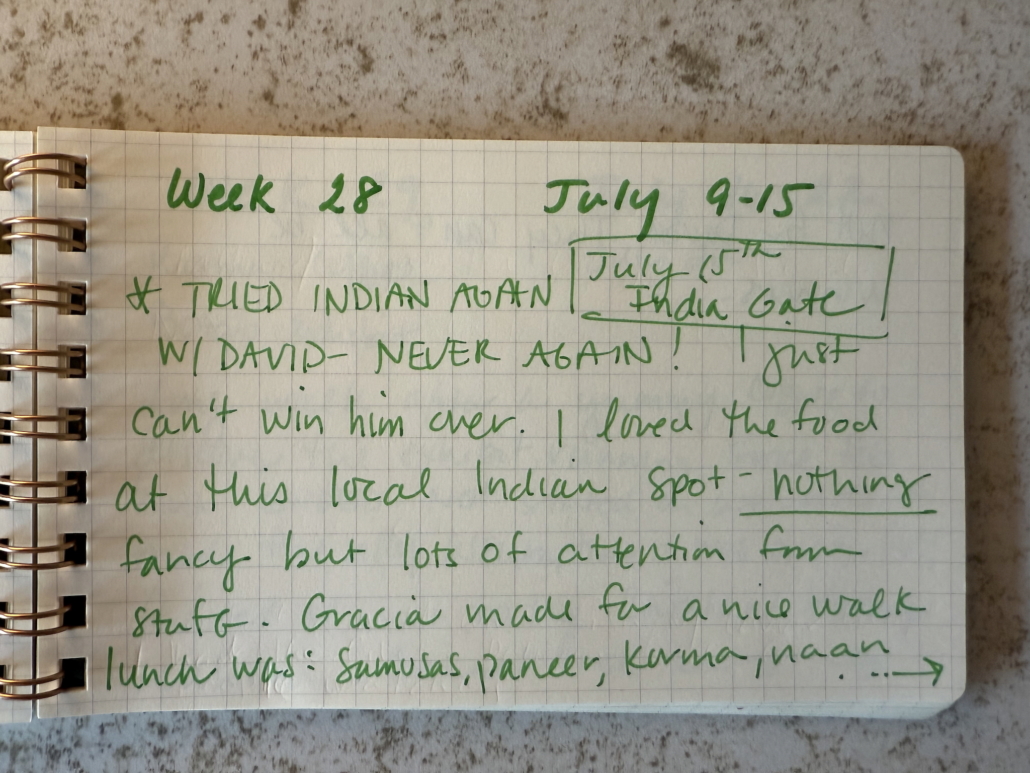 Week 28 July 9-15
July 15th
* TRIED INDIAN AGAIN India Gate
W/ DAVID- NEVER AGAIN! I just
can't win him over. I loved the food
at this local Indian spot - nothing
fancy but lots of attention from
staff. Gracia made for a nice walk
lunch was: Samosas, paneer, Korma, naan ...→